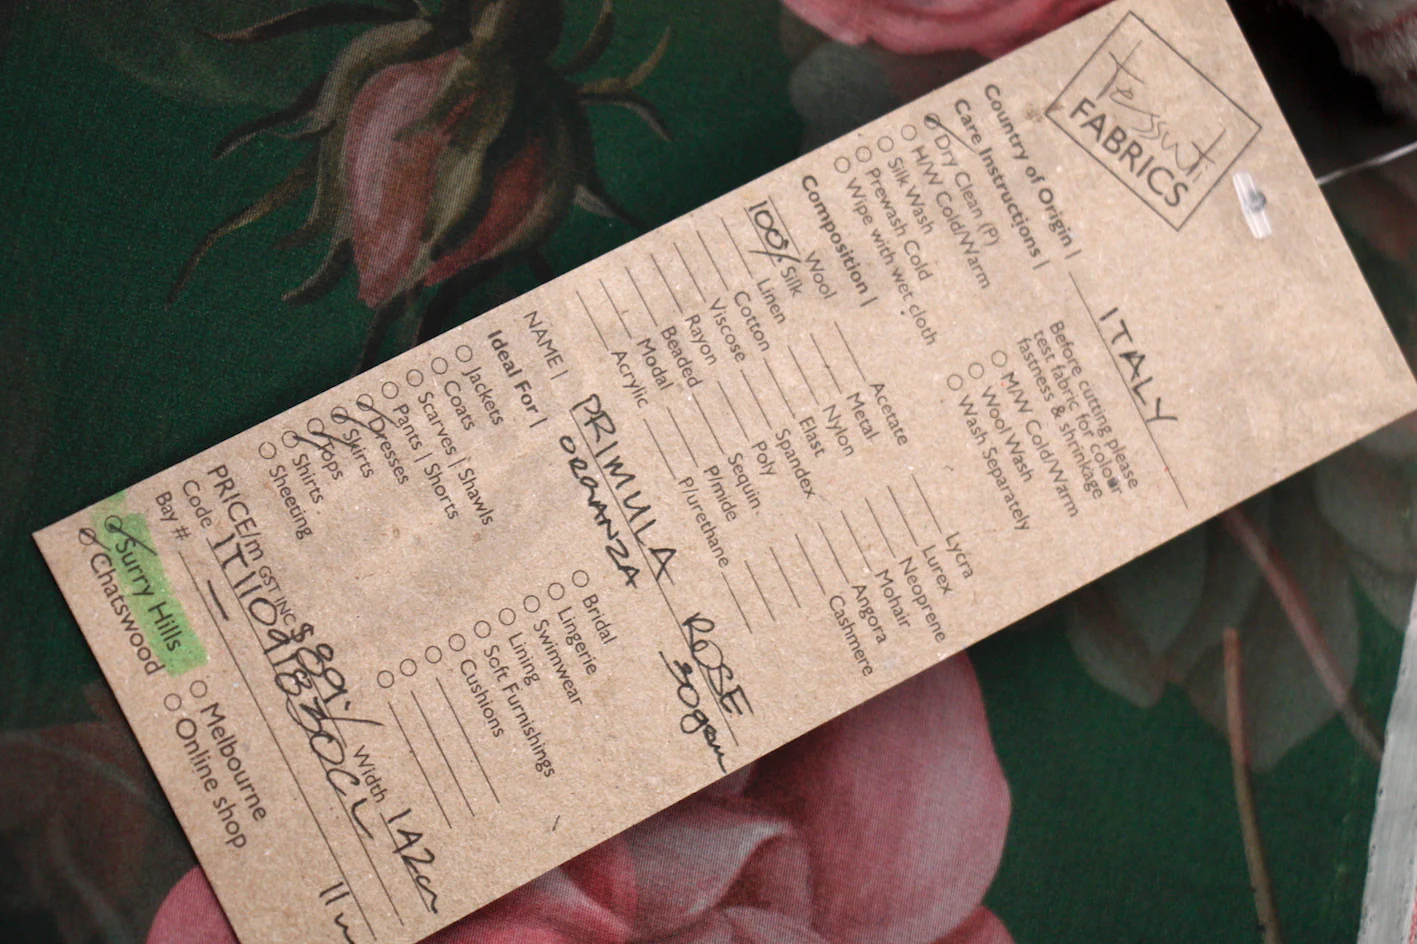 tessuti
FABRICS
Country of Origin | ITALY
Care Instructions |
Dry Clean (P)
H/W Cold/Warm
Silk Wash
Prewash Cold
Wipe with wet cloth
Before cutting please
test fabric for colour
fastness & shrinkage
M/W Cold/Warm
Wool Wash
Wash Separately
Composition |
Wool Acetate Lycra
100% Silk Metal Lurex
Linen Nylon Neoprene
Cotton Elast Mohair
Viscose Spandex Angora
Rayon Poly Cashmere
Beaded Sequin
Modal P/mide
Acrylic P/urethane
NAME | PRIMULA ROSE
ORGANZA 30gsm
Ideal For |
Jackets
Coats
Scarves | Shawls
Pants | Shorts
Dresses
Skirts
Tops
Shirts
Sheeting
Bridal
Lingerie
Swimwear
Lining
Soft Furnishings
Cushions
PRICE/m GST INC $89 Width 142cm
Code
Bay #
Surry Hills
Chatswood
Melbourne
Online shop